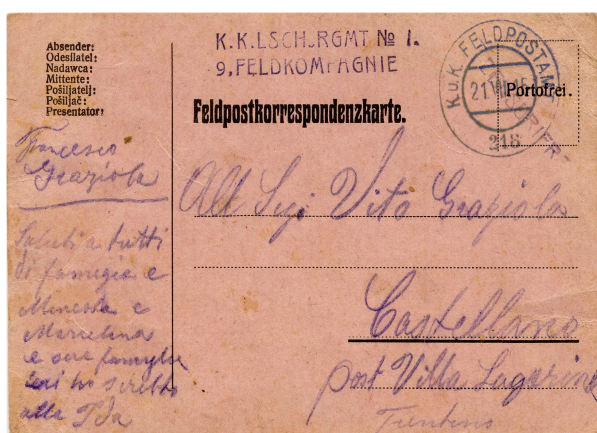 Absender:
Odesílatel:
Nadawca:
Mittente:
Pošiljatelj:
Pošiljač:
Presentator:
K.K.LSCH.RGMT № 1.
9. FELDKOMPAGNIE
K.u.K. FELDPOSTAMT
21.VII.15
218
Portofrei.
Feldpostkorrespondenzkarte.
Francesco
Graziola
Saluti a tutti
di famiglia e
e
Marcelina
e sue
ieri ho
alla Ida
All Sig. Vito Graziola
Castellano
post Villa Lagarina
Trentino